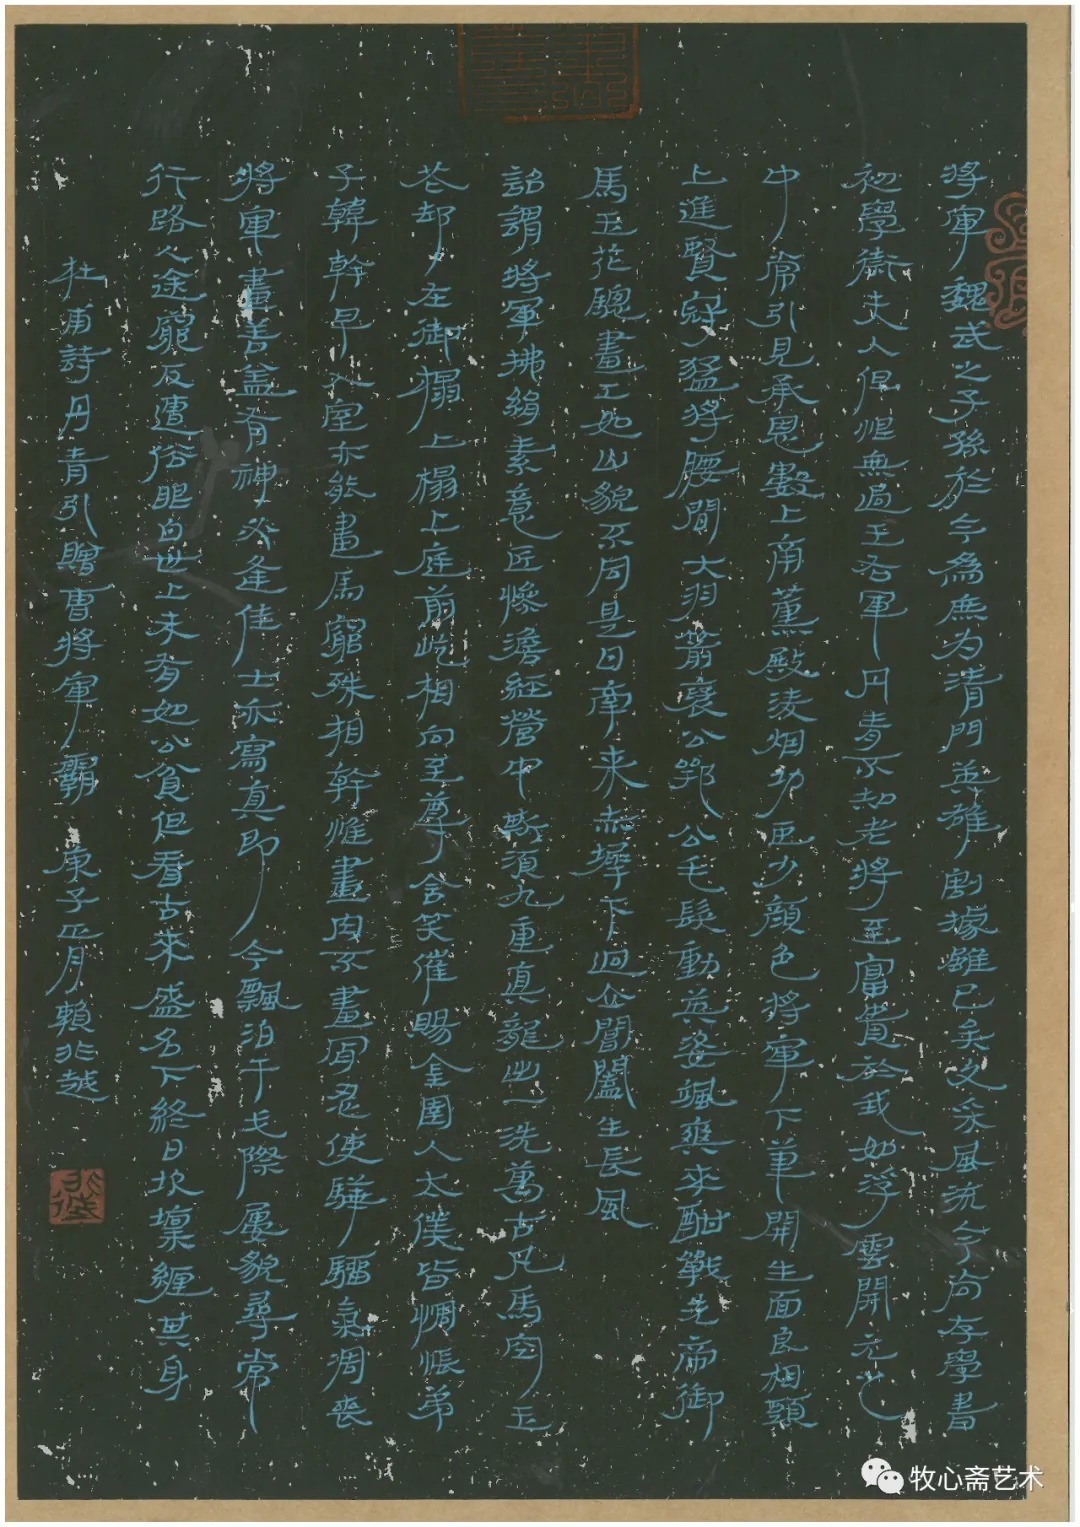 將軍魏武之子孫於今為庶为清門英雄割據雖已矣文采風流今尚存學書
初學衛夫人但恨無過王右軍丹青不知老將至富貴於我如浮雲開元之
中常引見承恩數上南薰殿凌烟功臣少顏色將軍下筆開生面良相頭
上進賢冠猛將腰間大羽箭褒公鄂公毛髮動英姿颯爽來酣戰先帝御
馬玉花驄畫工如山貌不同是日牽来赤墀下迥立閶闔生長風
詔謂將軍拂絹素意匠慘澹經營中斯須九重真龍出一洗萬古凡馬空玉
花却在御榻上榻上庭前屹相向至尊含笑催賜金圉人太僕皆惆悵弟
子韓幹早入室亦能畫馬窮殊相幹惟畫肉不畫骨忍使驊騮氣凋喪
將軍畫善蓋有神必逢佳士亦寫真即今飄泊干戈際屢貌尋常
行路人途窮反遭俗眼白世上未有如公貧但看古來盛名下終日坎壈纏其身
杜甫詩丹青引贈曹將軍霸 庚子正月賴非越
牧心斋艺术